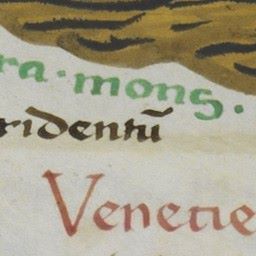 ra · mons.
ridentū
Venecie